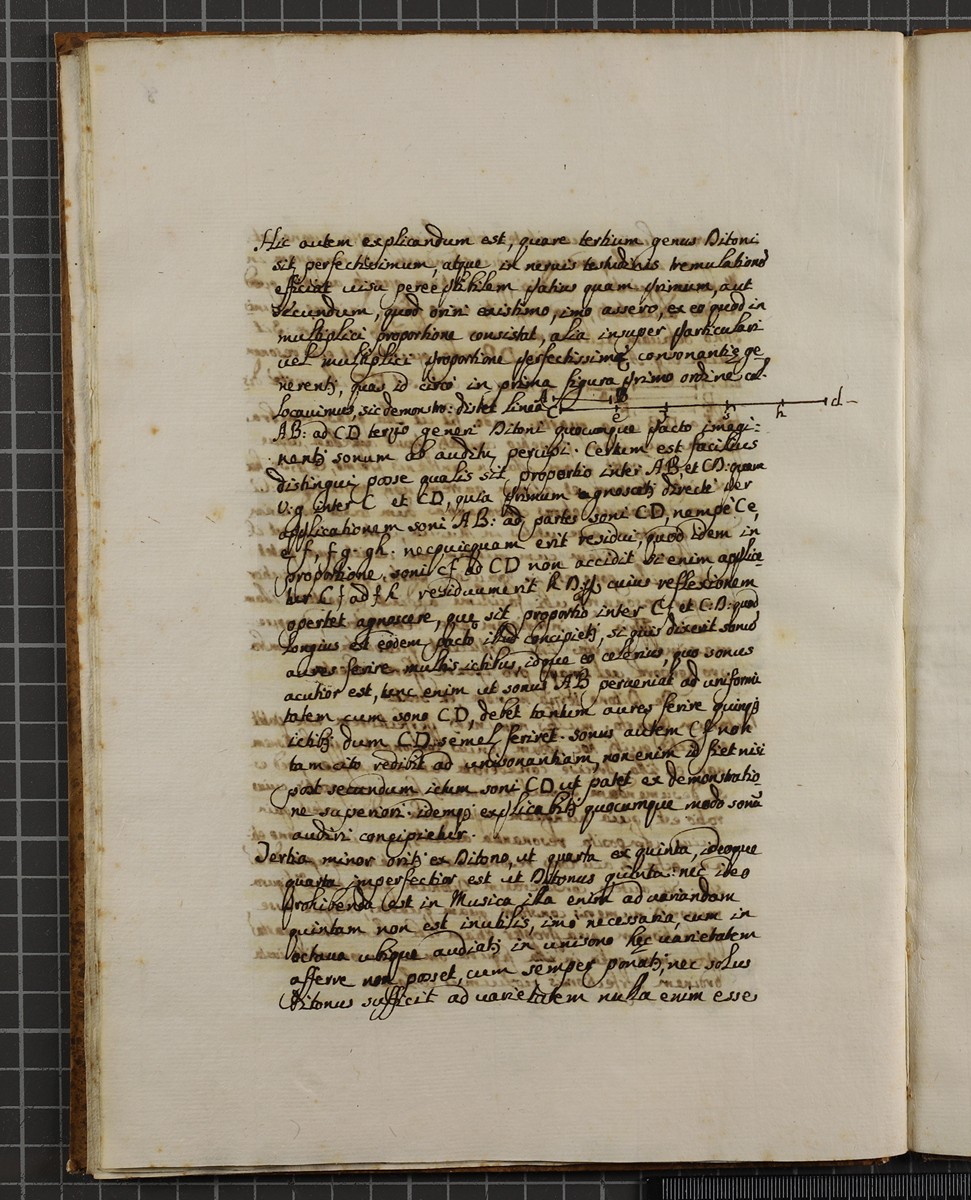 Hic autem explicandum est, quare tertium genus Ditoni
sit perfectissimum, atque in neruis testudinis tremulationē
efficiat uisu perceptibilem potius quam primum, aut
secundum, quod oriri existimo, imo assero, ex eo quod in
multiplici proportione consistat, alia insuper particulari
uel multiplici proportione perfectissimę consonantię ge
nerentʒ, quas id circo in prima figura primo ordine col-
locauimus, sic demonstro: distet linea A B C e f g h d-
AB: ad CD tertio generi Ditoni quocunque pacto imagi:
nentʒ sonum ab auditu percipi. Certum est facilius
distingui posse qualis sit proportio inter AB, et CD: quam
V:g inter C et CD, quia primum agnoscetʒ directè per
applicationem soni AB: ad partes soni CD, nempè Ce,
ef, fg. gh. necquicquam erit residui, quod idem in
proportione, soni cf ad CD non accidit si enim applice-
tur Cf ad fh residuum erit h D, cuius reflexionem
opertet agnoscere, quę sit proportio inter Cf et C:D: quod
longius est eodem pacto illud concipietʒ, si quis dixerit sonū
aures ferire multis ictibus, idque eo celerius, quo sonus
acutior est, tunc enim ut sonus AB perueniat ad uniformi
tatem cum sono CD, debet tantum aures ferire quinqʒ
ictibʒ dum CD semel feriret. sonus autem Cf non
tam cito redibit ad unisonantiam, non enim id fiet nisi
post secundum ictum soni CD ut patet ex demonstratio
ne superiori. idemqʒ explicabitʒ quocumque modo sonū
audiri concipietur.
Tertia minor oritʒ ex Ditono, ut quarta ex quinta, ideoque
quarta imperfectior est ut Ditonus quinta: nec ideo
prohibenda est in Musica illa enim ad uariandam
quintam non est inutilis, imò necessaria, cum in
octaua ubique audiatʒ in unisono hęc uarietatem
afferre non posset, cum semper ponatʒ, nec solus
Ditonus sufficit ad uarietatem nulla enim esse